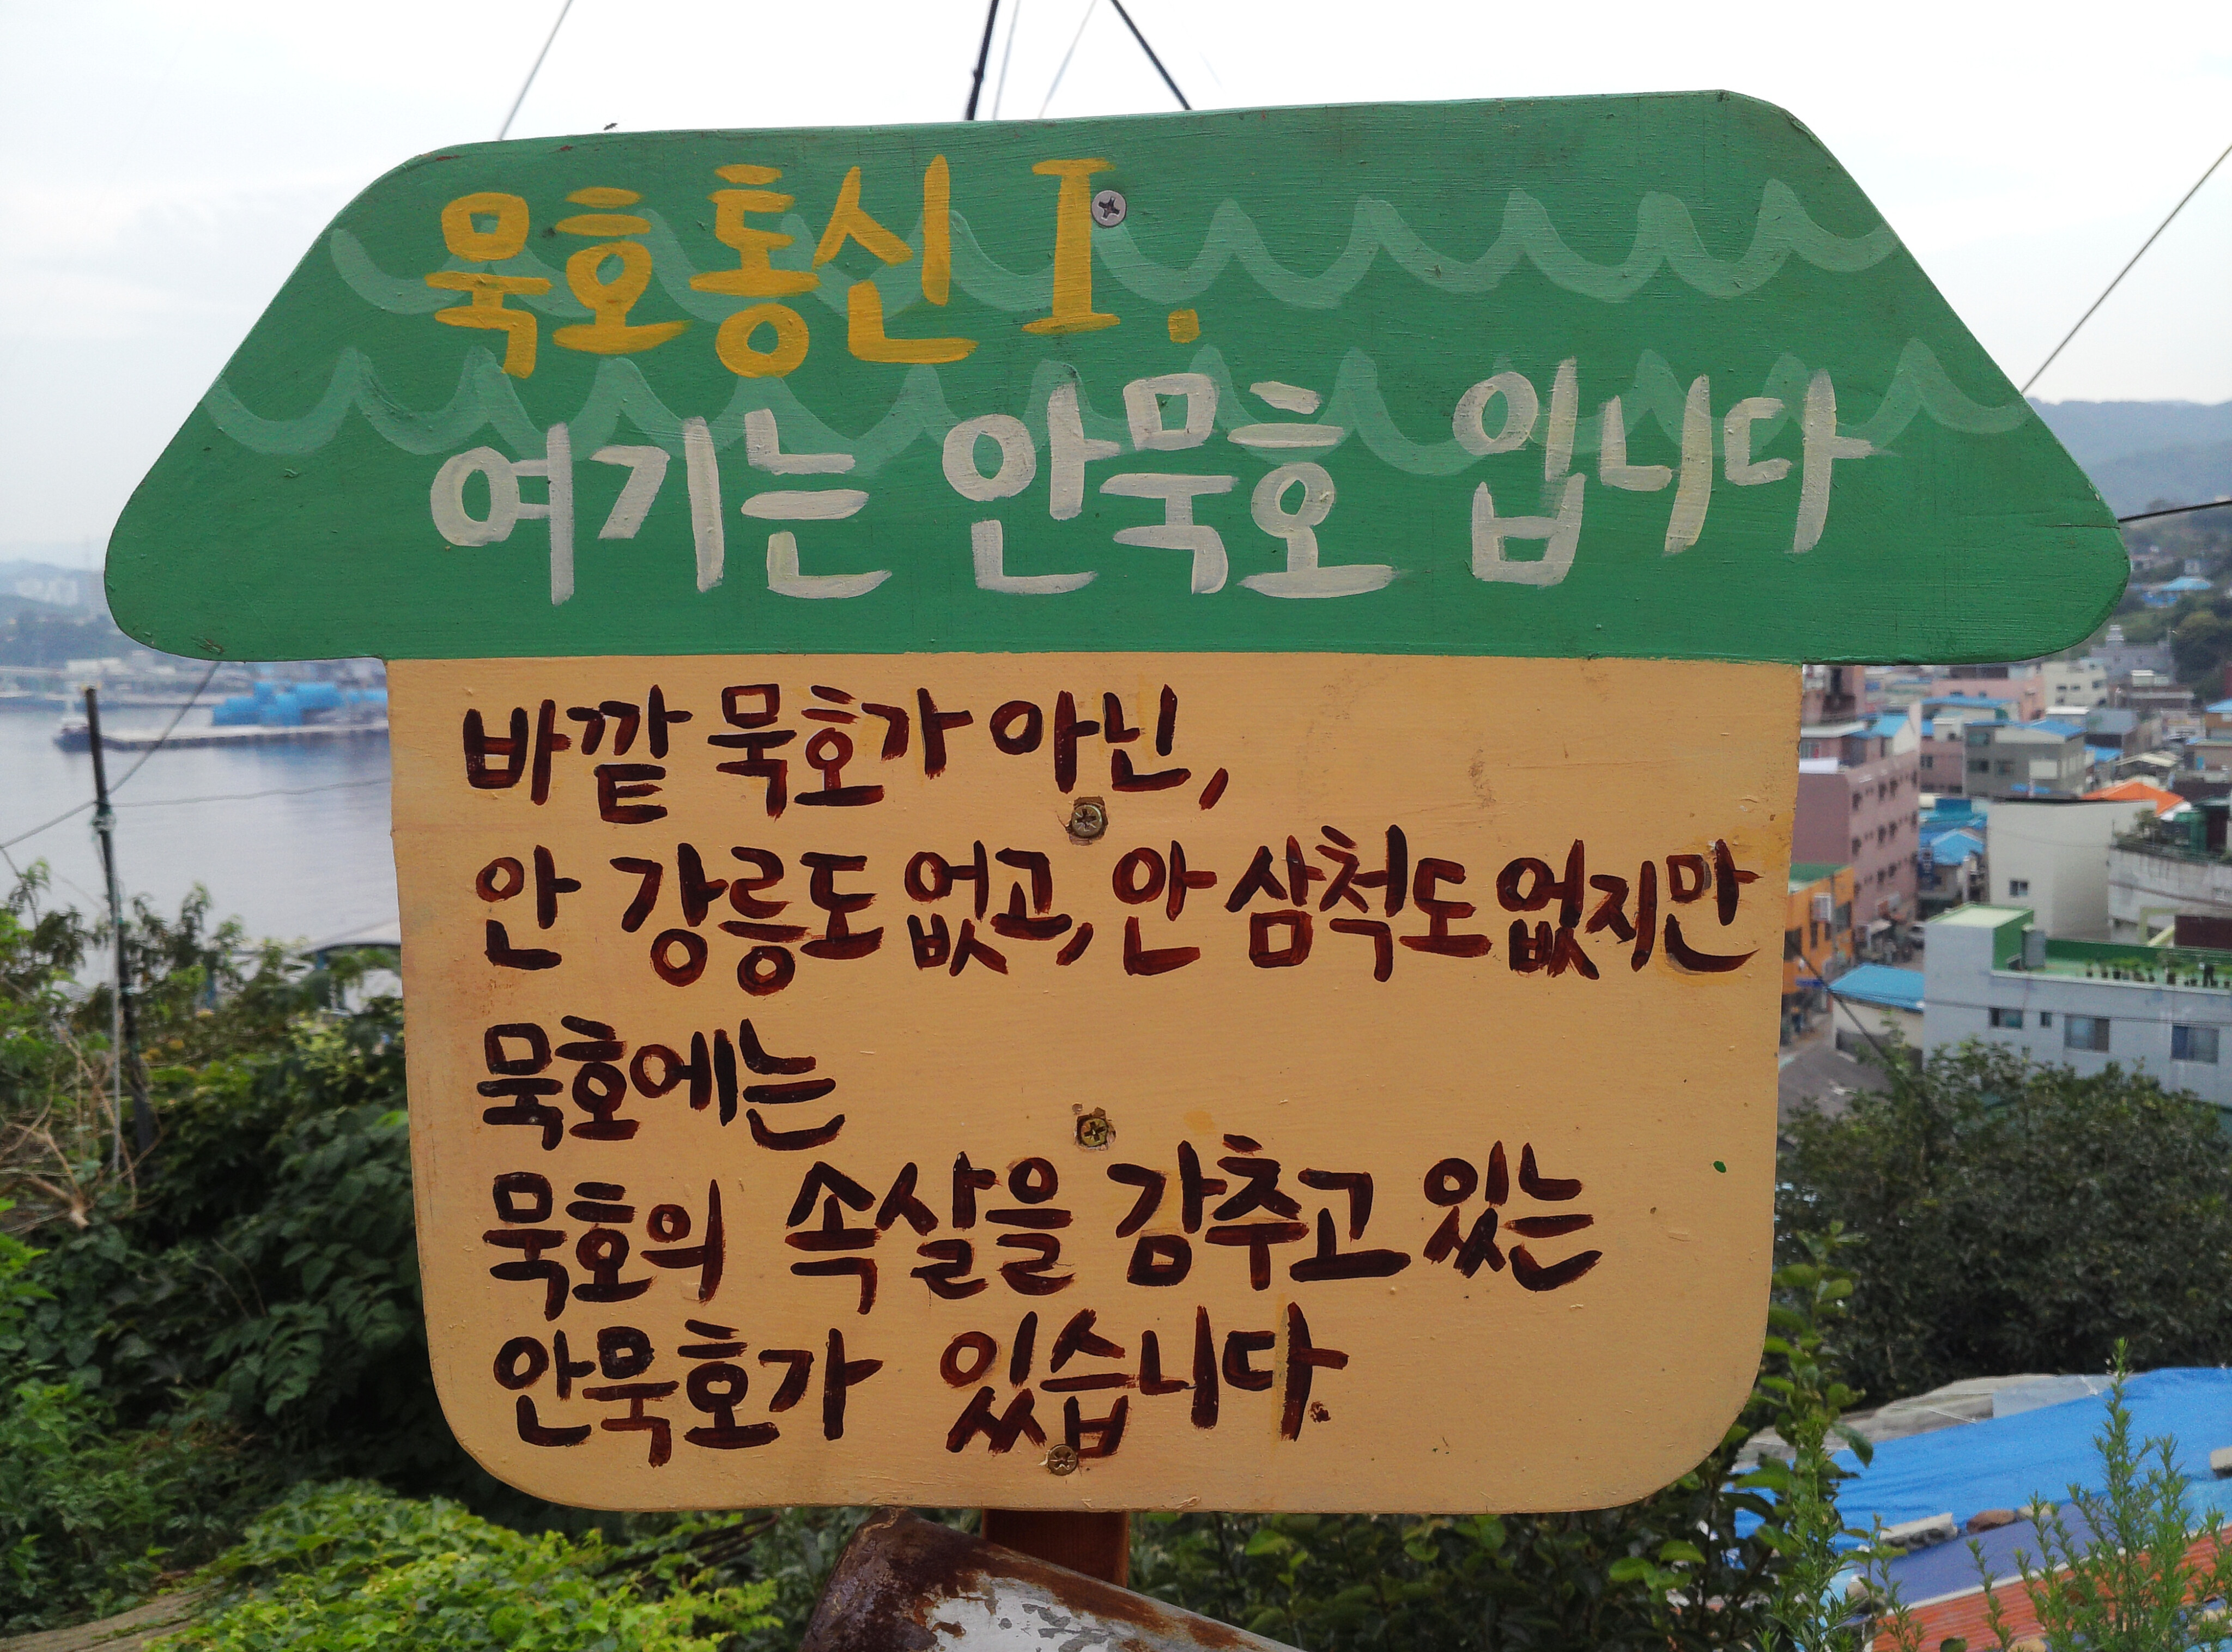 묵호통신 I.
여기는 안묵호 입니다
바깥 묵호가 아닌,
안 강릉도 없고, 안 삼척도 없지만
묵호에는
묵호의 속살을 감추고 있는
안묵호가 있습니다.